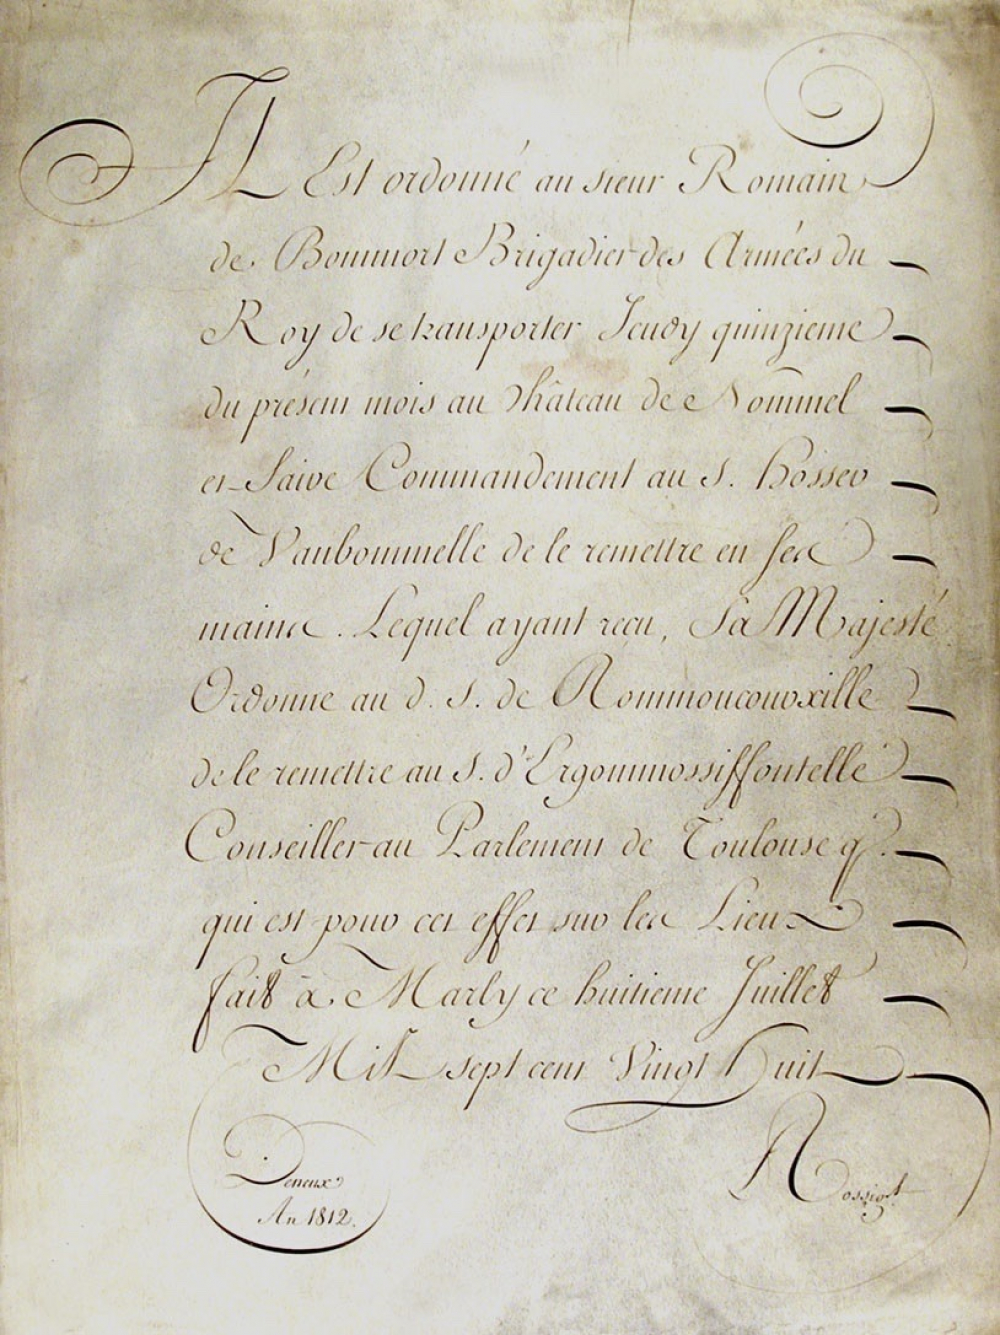 IL Est ordonné au sieur Romain
de Bommort Brigadier des Armées du
Roy de se transporter Jeudy quinzieme
du présent mois au Château de Nommel
et Faire Commandement au S. Hosser
de Vaubommelle de le remettre en ses
mains. Lequel ayant reçu, Sa Majesté
Ordonne au d. S. de Rommoucourville
de le remettre au S. d'Ergommossiffontelle
Conseiller au Parlement de Toulouse q.
qui est pour cet effet sur les Lieux
fait à Marly ce huitieme Juillet
Mil sept cent Vingt huit
Deneux
An 1812.
Rossigl